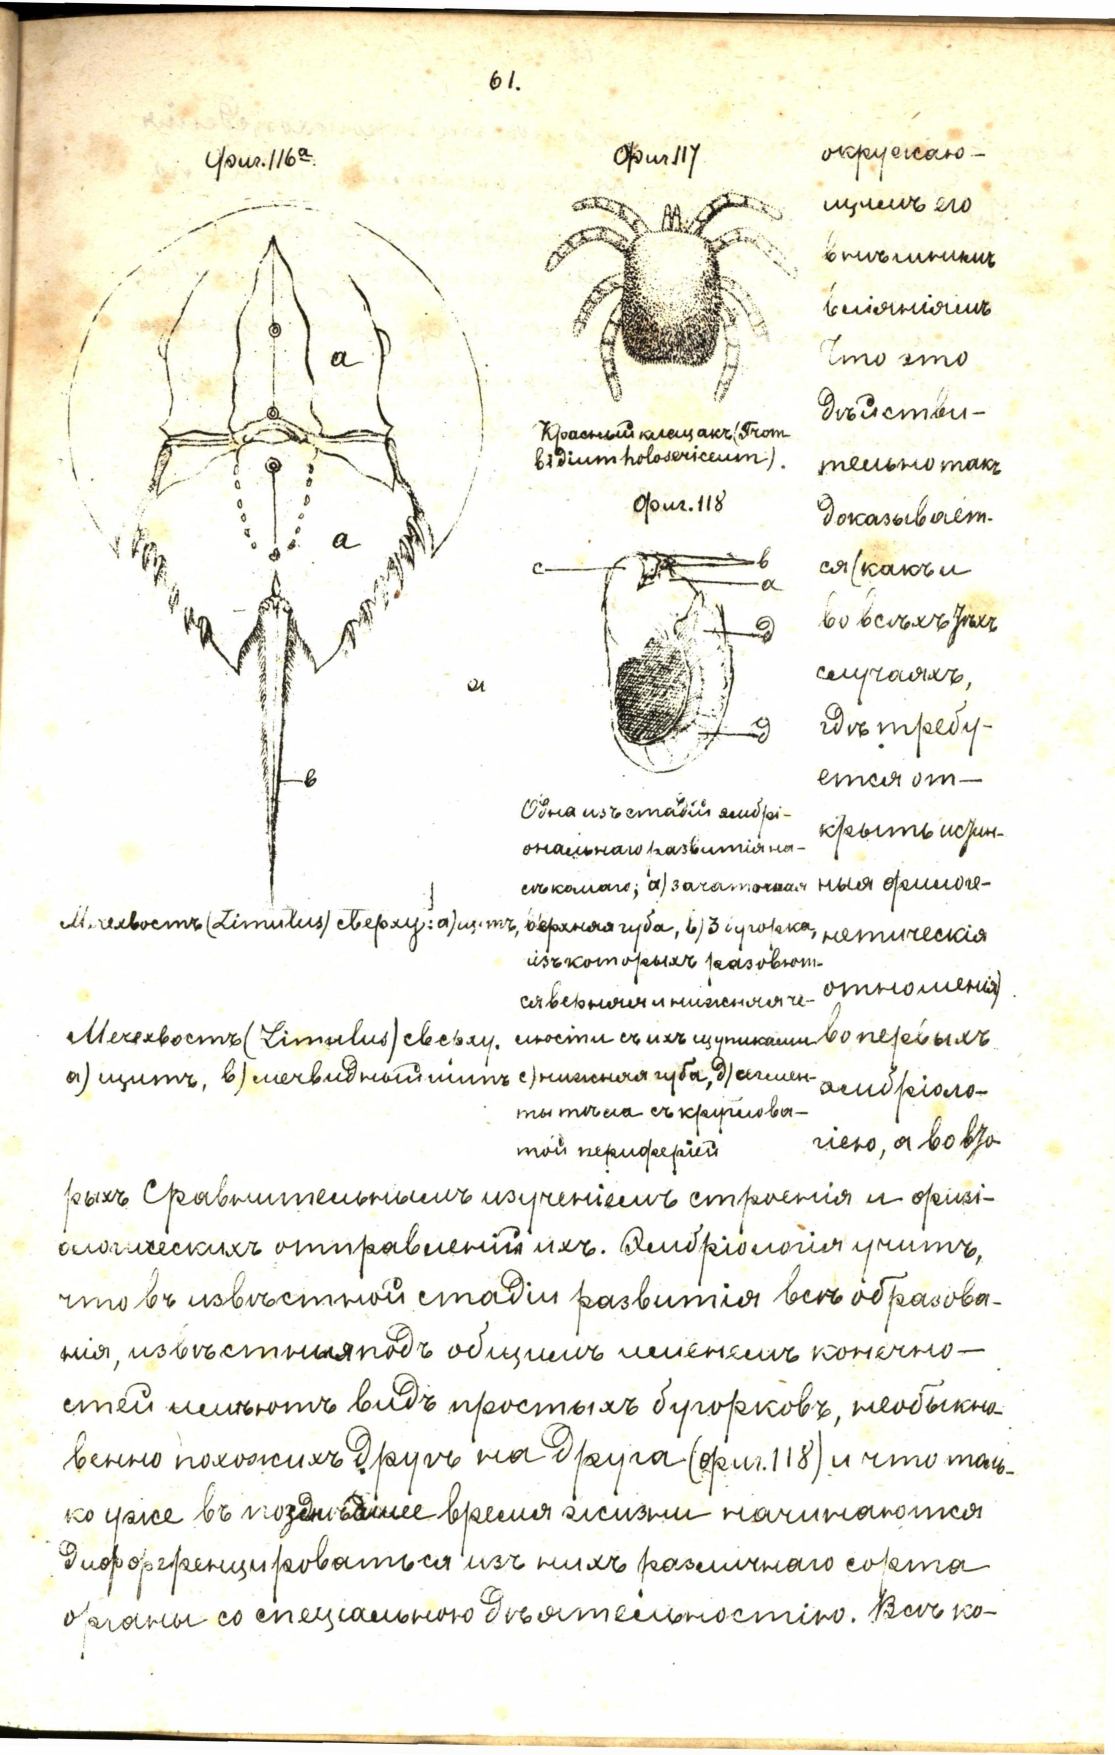 61.
Фиг. 116а.
а
а
в
а
Мечехвостъ (Limulus) сверху: а) щитъ,
Мечехвостъ (Limulus) сверху.
а) щитъ, в) мечевидный шипъ
Фиг 117
Красный клещакъ (Trom
bidium holosericeum).
Фиг. 118
с
в
а
д
д
Одна изъ стадій эмбрі-
ональнаго развитія на-
сѣкомаго; а) зачаточная
верхняя губа, в) 3 бугорка,
изъ которыхъ разовьют-
ся верхняя и нижняя че-
люсти съ ихъ щупиками
с) нижняя губа, д) сегмен-
ты тѣла съ круглова-
той периферіей
окружаю-
щимъ его
внѣшнимъ
вліяніямъ
Что это
дѣйстви-
тельно такъ
доказывает-
ся (какъ и
во всѣхъ тѣхъ
случаяхъ,
гдѣ требу-
ется от-
крыть истин-
ныя филоге-
нетическія
отношенія)
во первыхъ
эмбріоло-
гіею, а во вто
рыхъ сравнительнымъ изученіемъ строенія и физі-
ологическихъ отправленій ихъ. Эмбріологія учитъ,
что въ извѣстной стадіи развитія всѣ образова-
нія, извѣстныя подъ общимъ именемъ конечно-
стей имѣютъ видъ простыхъ бугорковъ, необыкно-
венно похожихъ другъ на друга (фиг. 118) и что толь-
ко уже въ позднѣйшее время жизни начинаются
дифференцироваться изъ нихъ различнаго сорта
органы со спеціальною дѣятельностію. Всѣ ко-